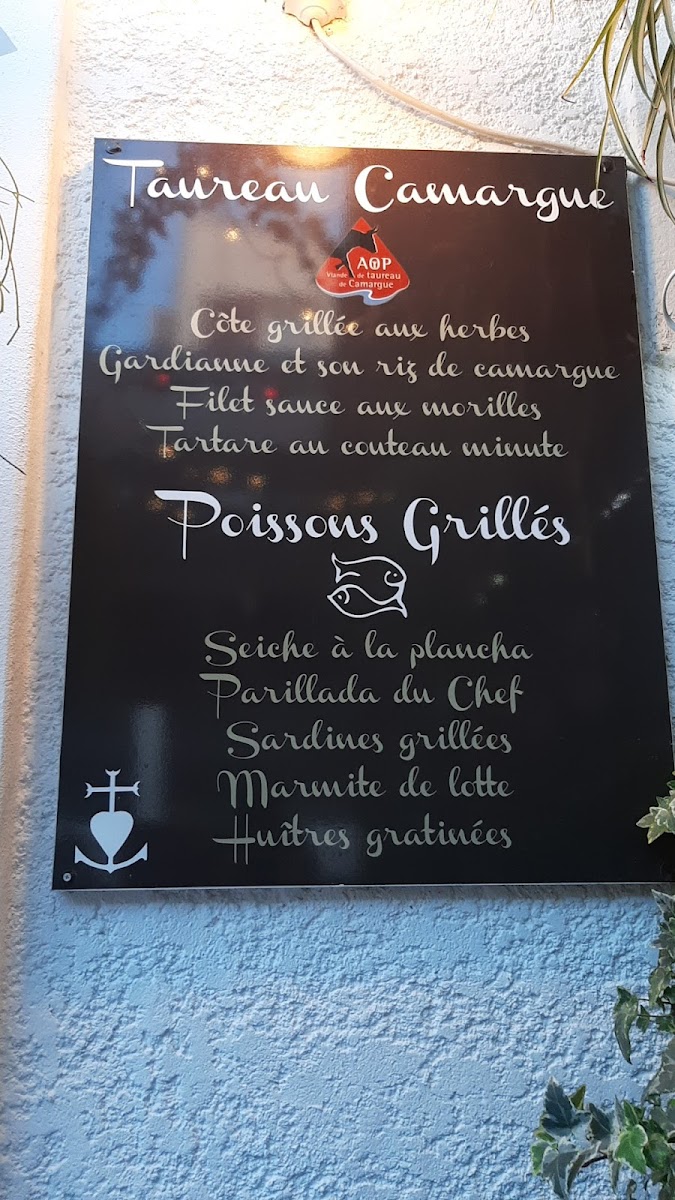 Taureau Camargue
AOP
Viande de taureau
de Camargue
Côte grillée aux herbes
Gardianne et son riz de camargue
Filet sauce aux morilles
Tartare au couteau minute
Poissons Grillés
Seiche à la plancha
Parillada du Chef
Sardines grillées
Marmite de lotte
Huîtres gratinées